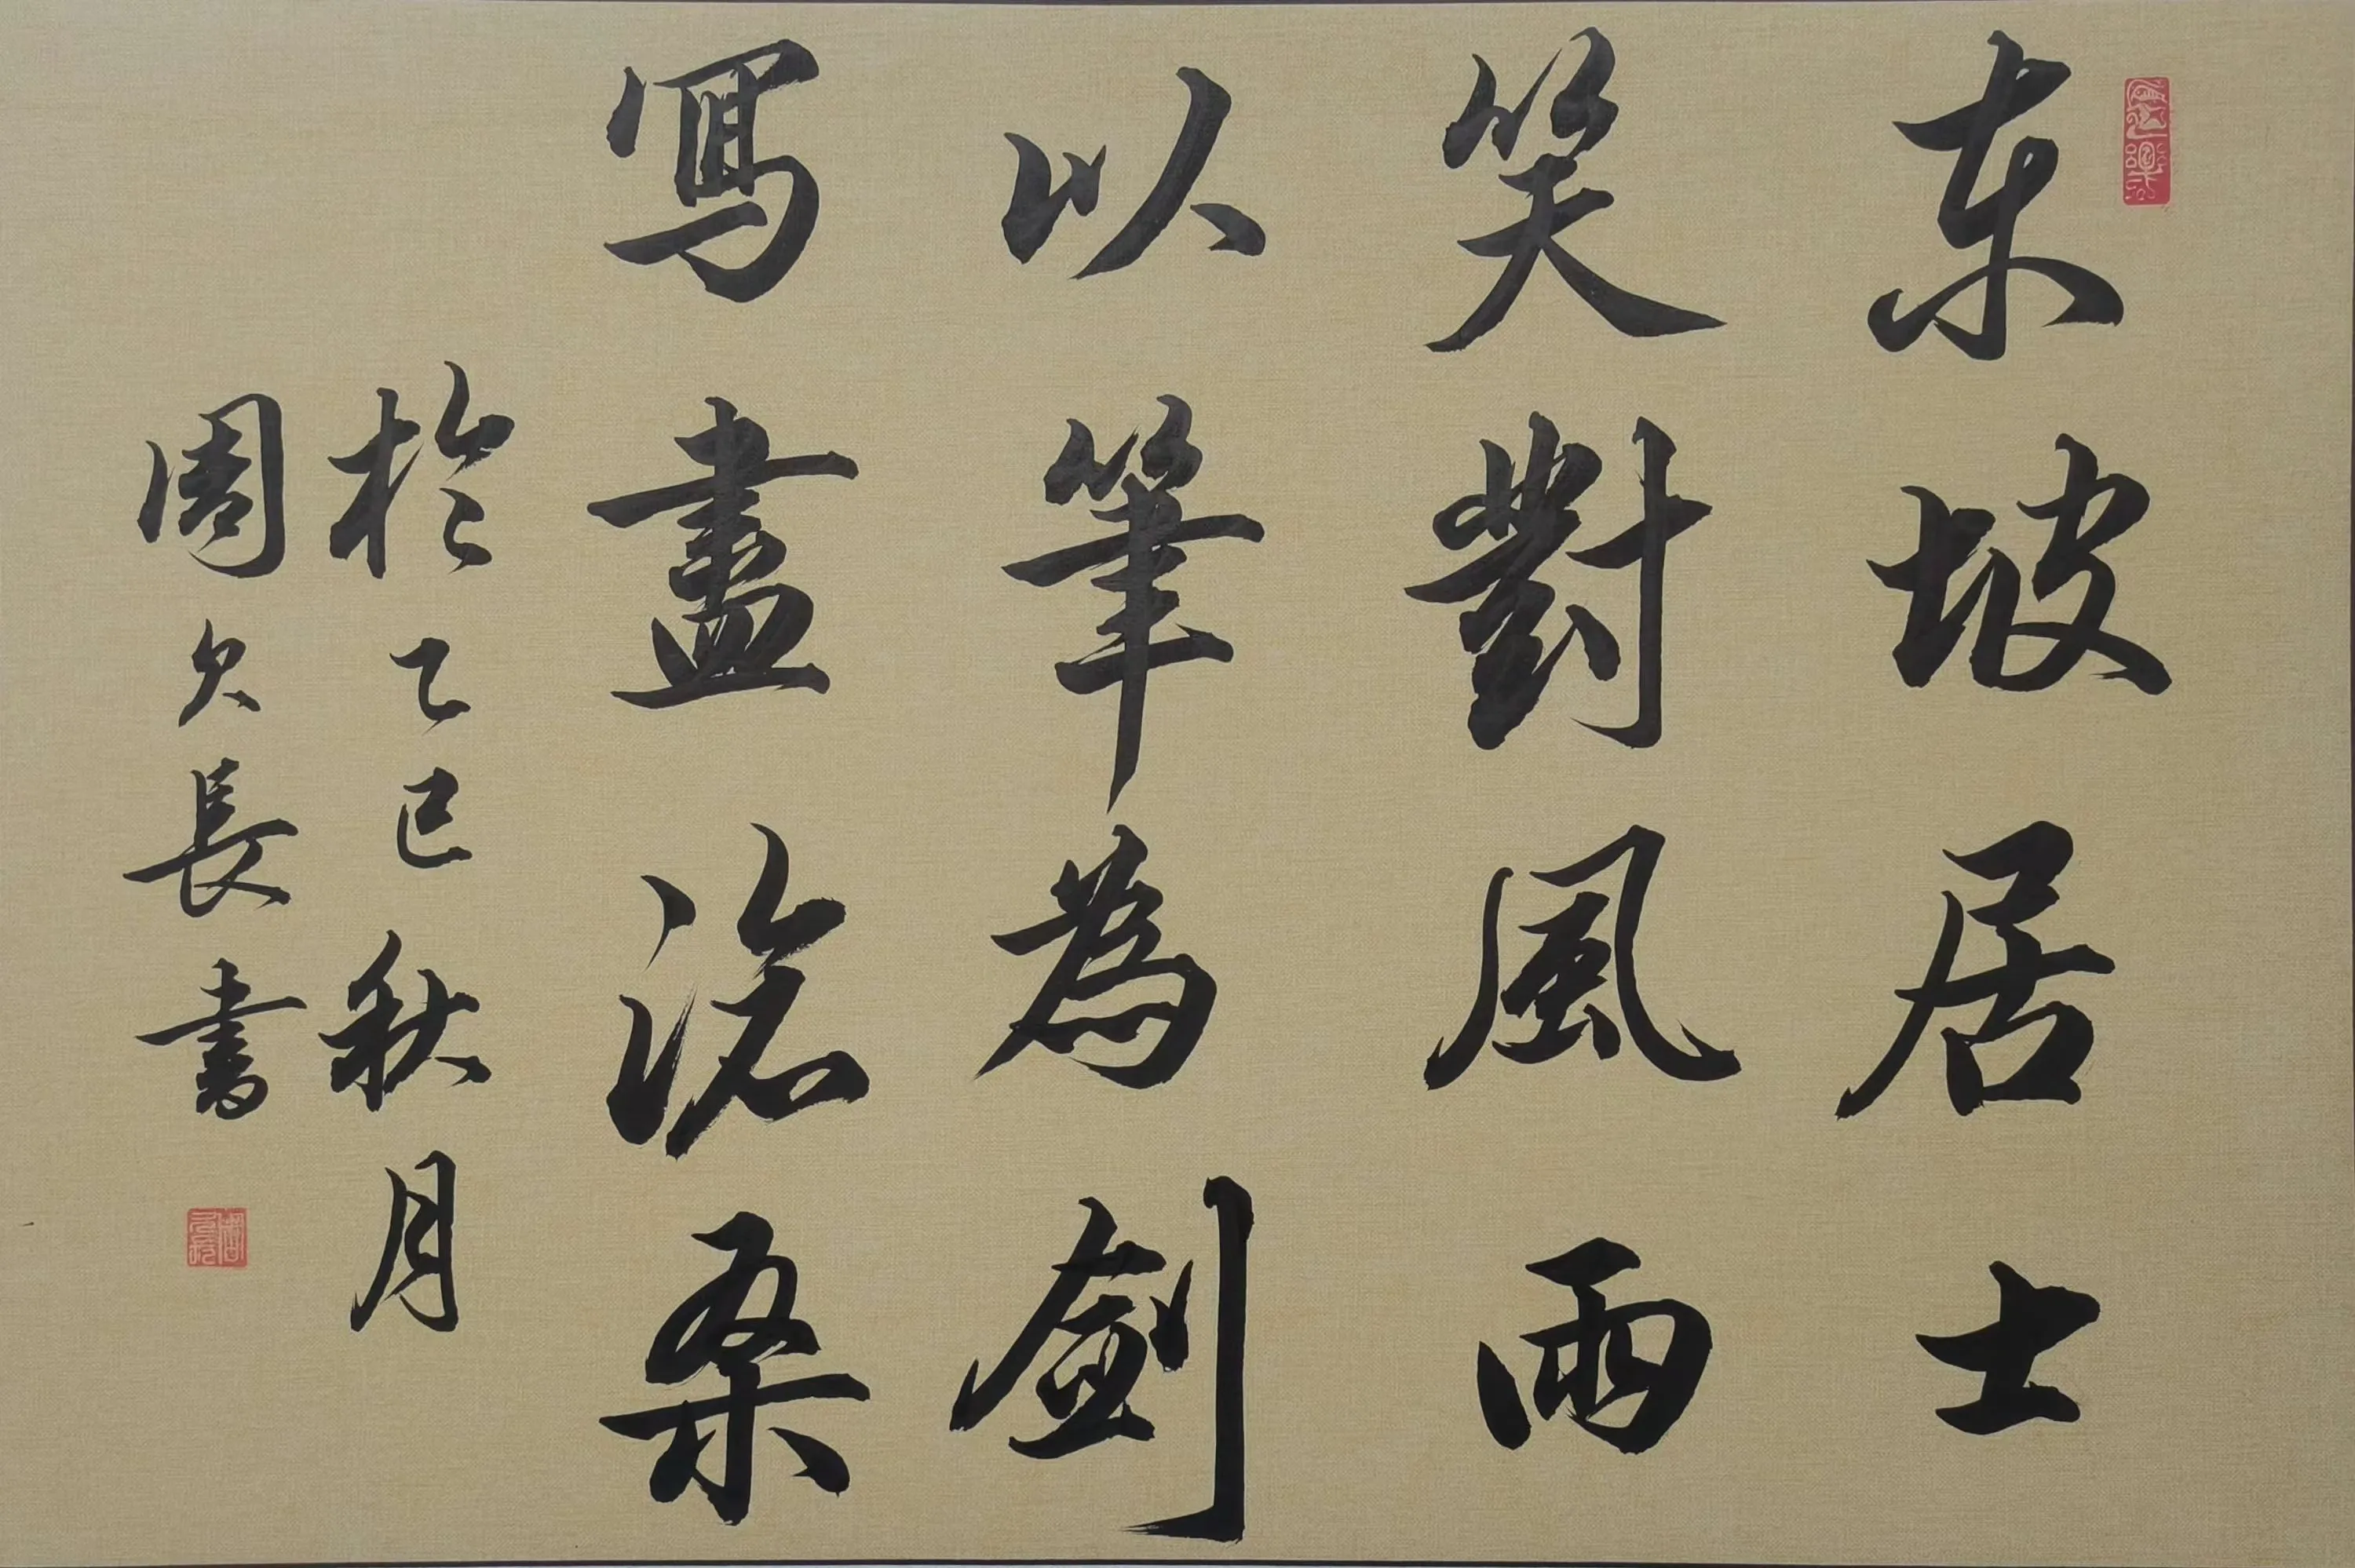 东坡居士
笑對風雨
以筆為劍
寫盡滄桑
於乙巳秋月
周久長書